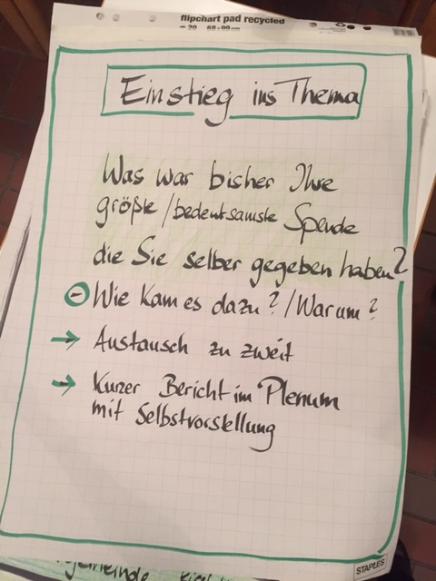 flipchart pad recycled
20
Einstieg ins Thema
Was war bisher Ihre
größte/bedeutsamste Spende
die Sie selber gegeben haben?
Wie kam es dazu?/Warum?
→ Austausch zu zweit
→ Kurzer Bericht im Plenum
mit Selbstvorstellung
STAPLES